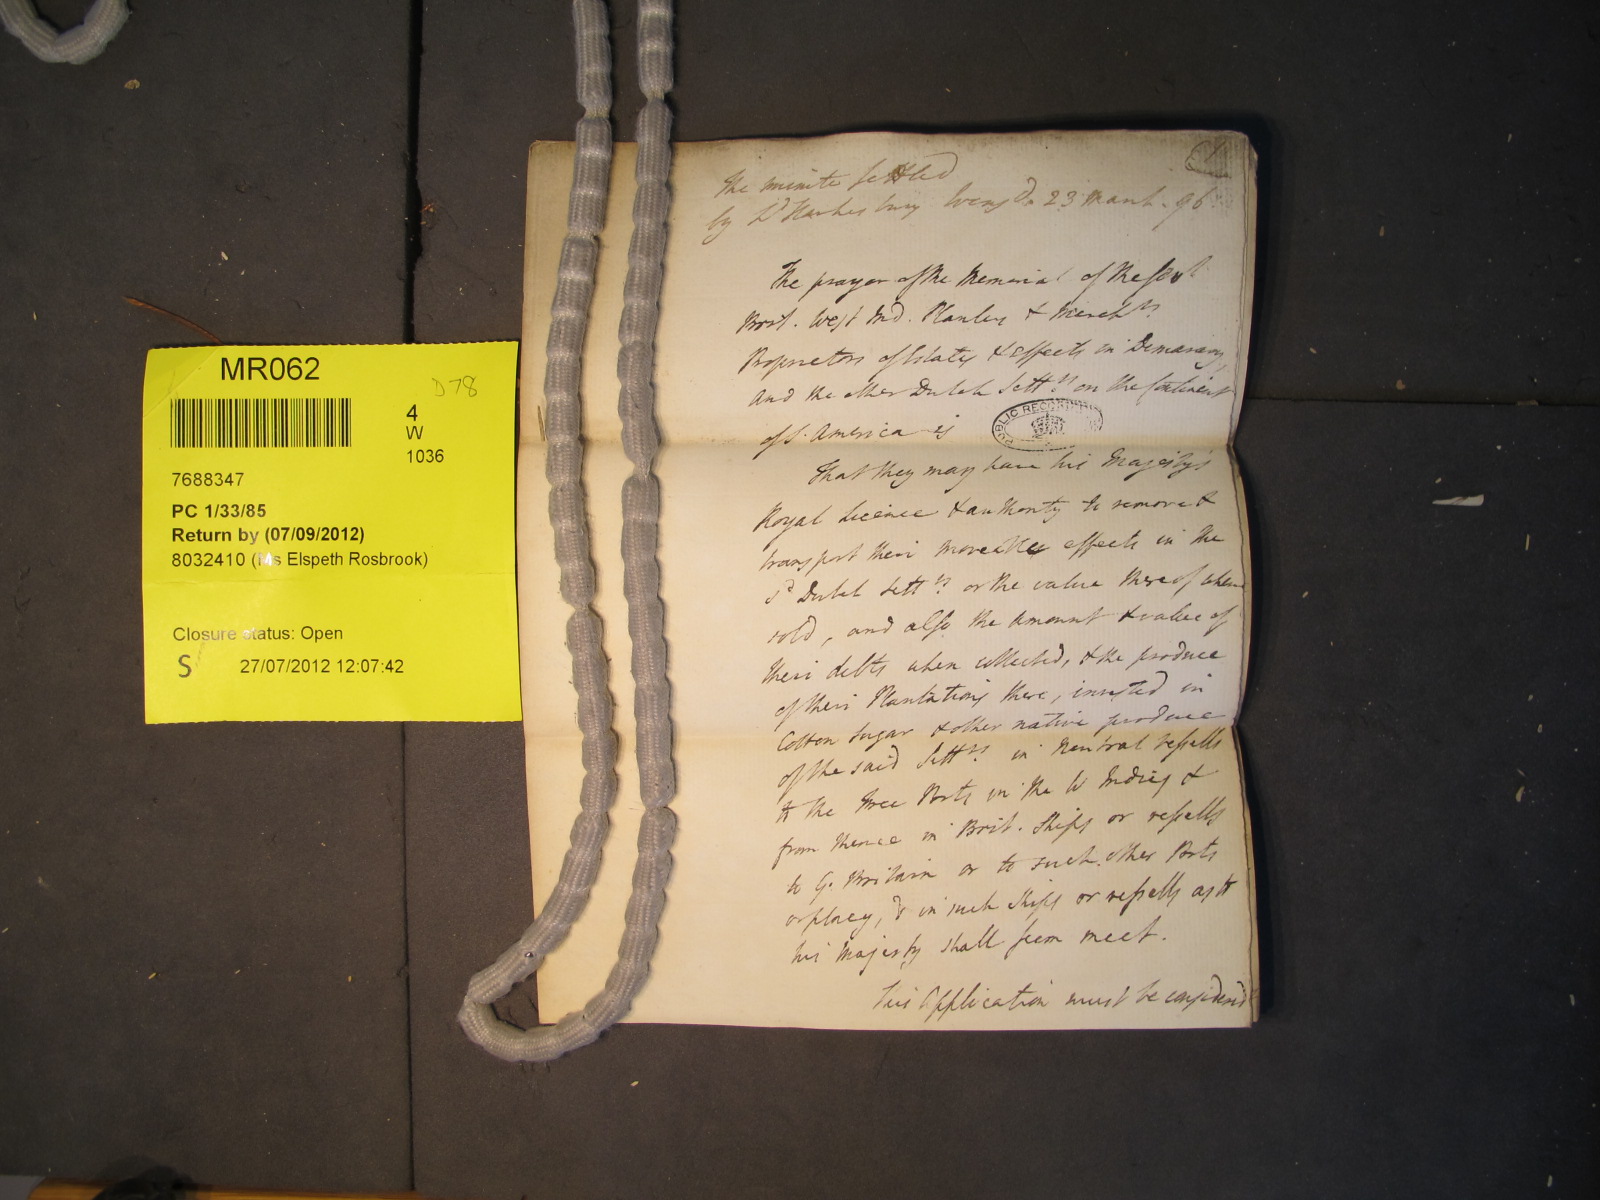 MR062
D78
4
W
1036
7688347
PC 1/33/85
Return by (07/09/2012)
8032410 (Ms Elspeth Rosbrook)
Closure status: Open
S
27/07/2012 12:07:42
The minite settled
by Ld Hawkesbury Wensdy 23 March. 96
The prayer of the Memorial of the sevl
Brit. West Ind. Planters & Merchts
Proprietors of Estates & effects in Demarary,
and the other Dutch Settts on the Continent
of S. America is
PUBLIC RECORD
That they may have his Majesty's
Royal Licence & authority to remove &
transport their moveable effects in the
sd Dutch Settts or the value thereof when
sold, and also the amount & value of
their debts when collected, & the produce
of their Plantations there, invested in
Cotton Sugar & other native produce
of the said Settts in Neutral vessells
to the Free Ports in the W Indies &
from thence in Brit. Ships or vessells
to G. Britain or to such other Ports
or places, & in such Ships or vessells as to
his Majesty shall seem meet.
This Application must be considered